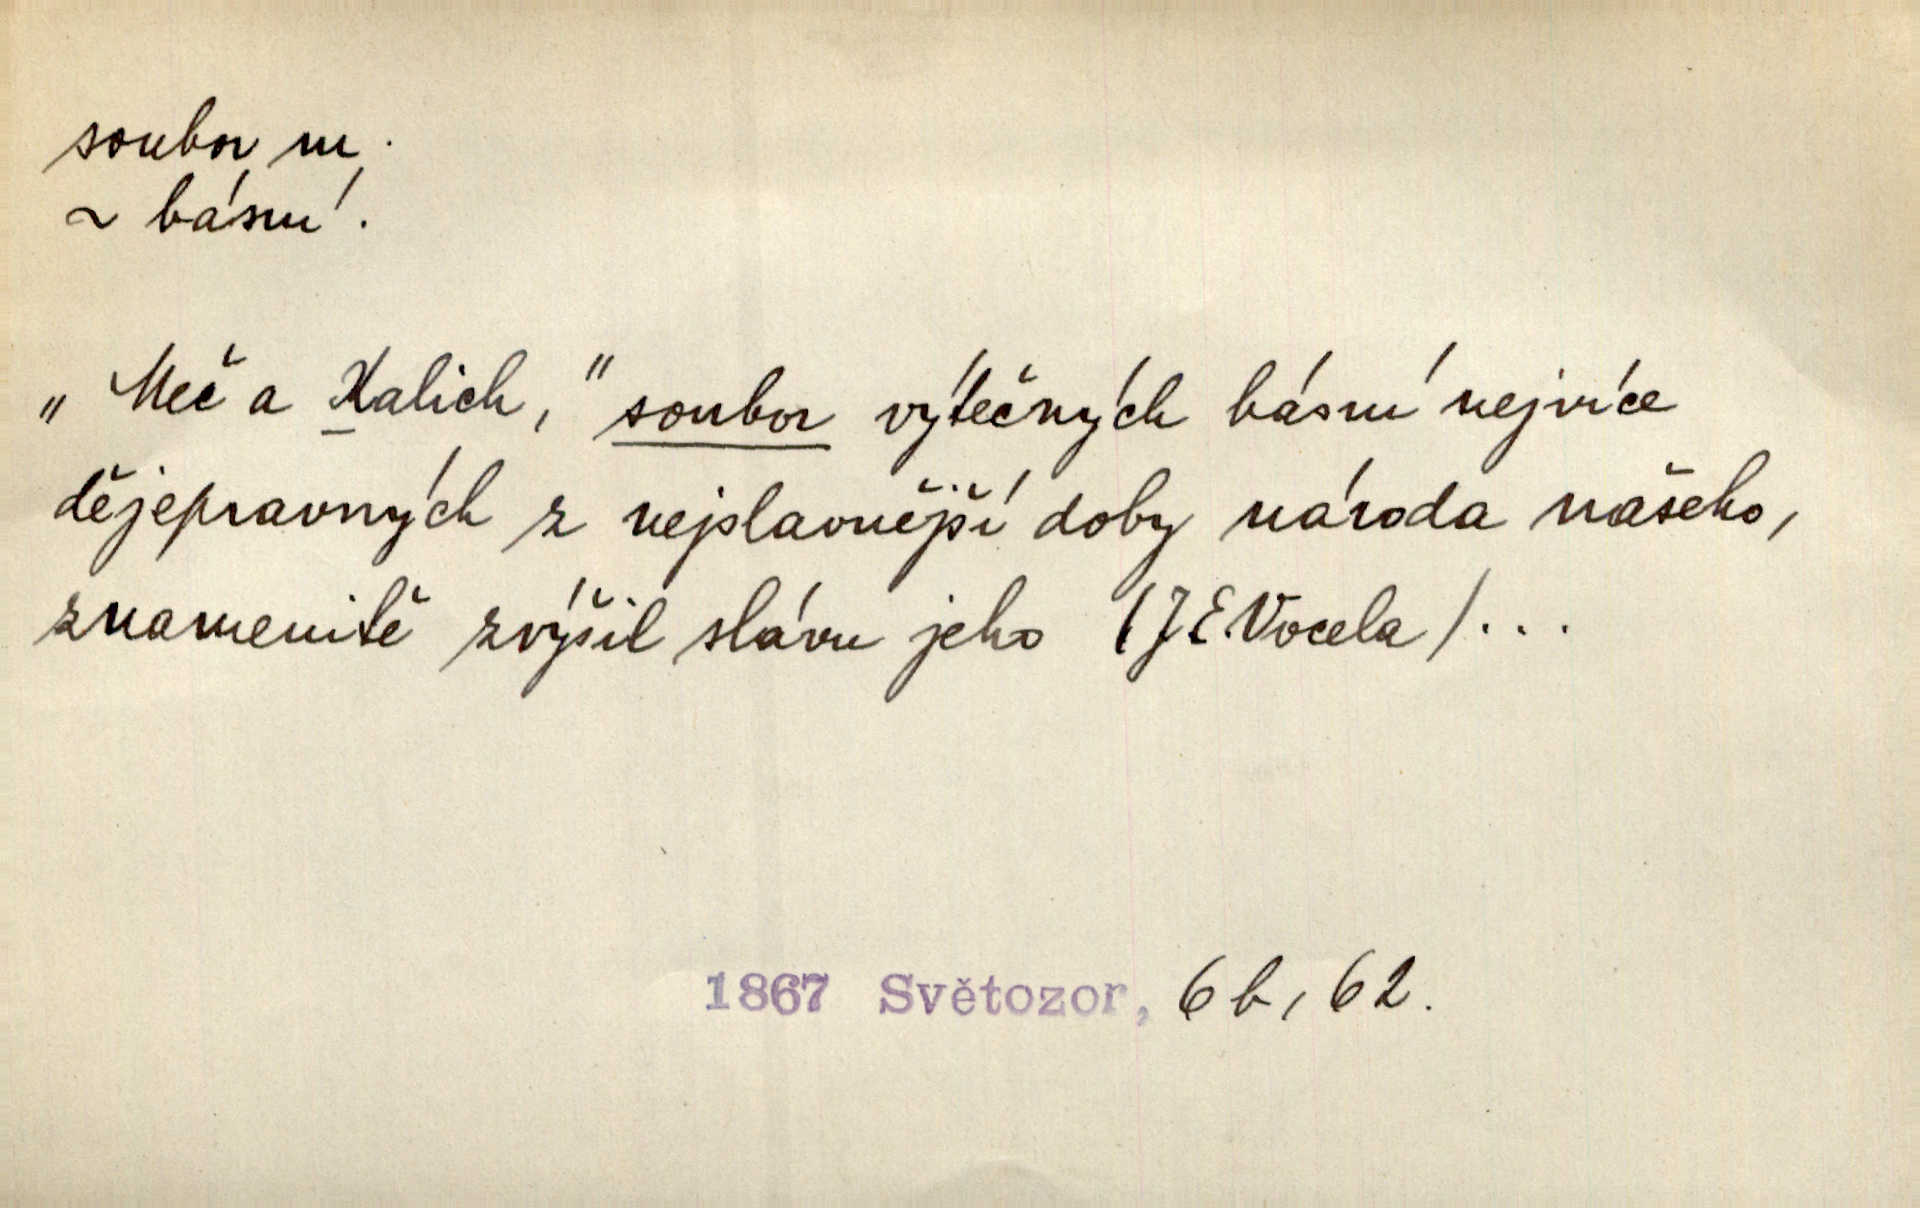 soubor m.
~ básní.
„Meč a Kalich,“ soubor výtečných básní nejvíce
dějepravných z nejslavnější doby národa našeho,
znamenitě zvýšil slávu jeho (J.E.Vocela) ...
1867 Světozor, 6b, 62.